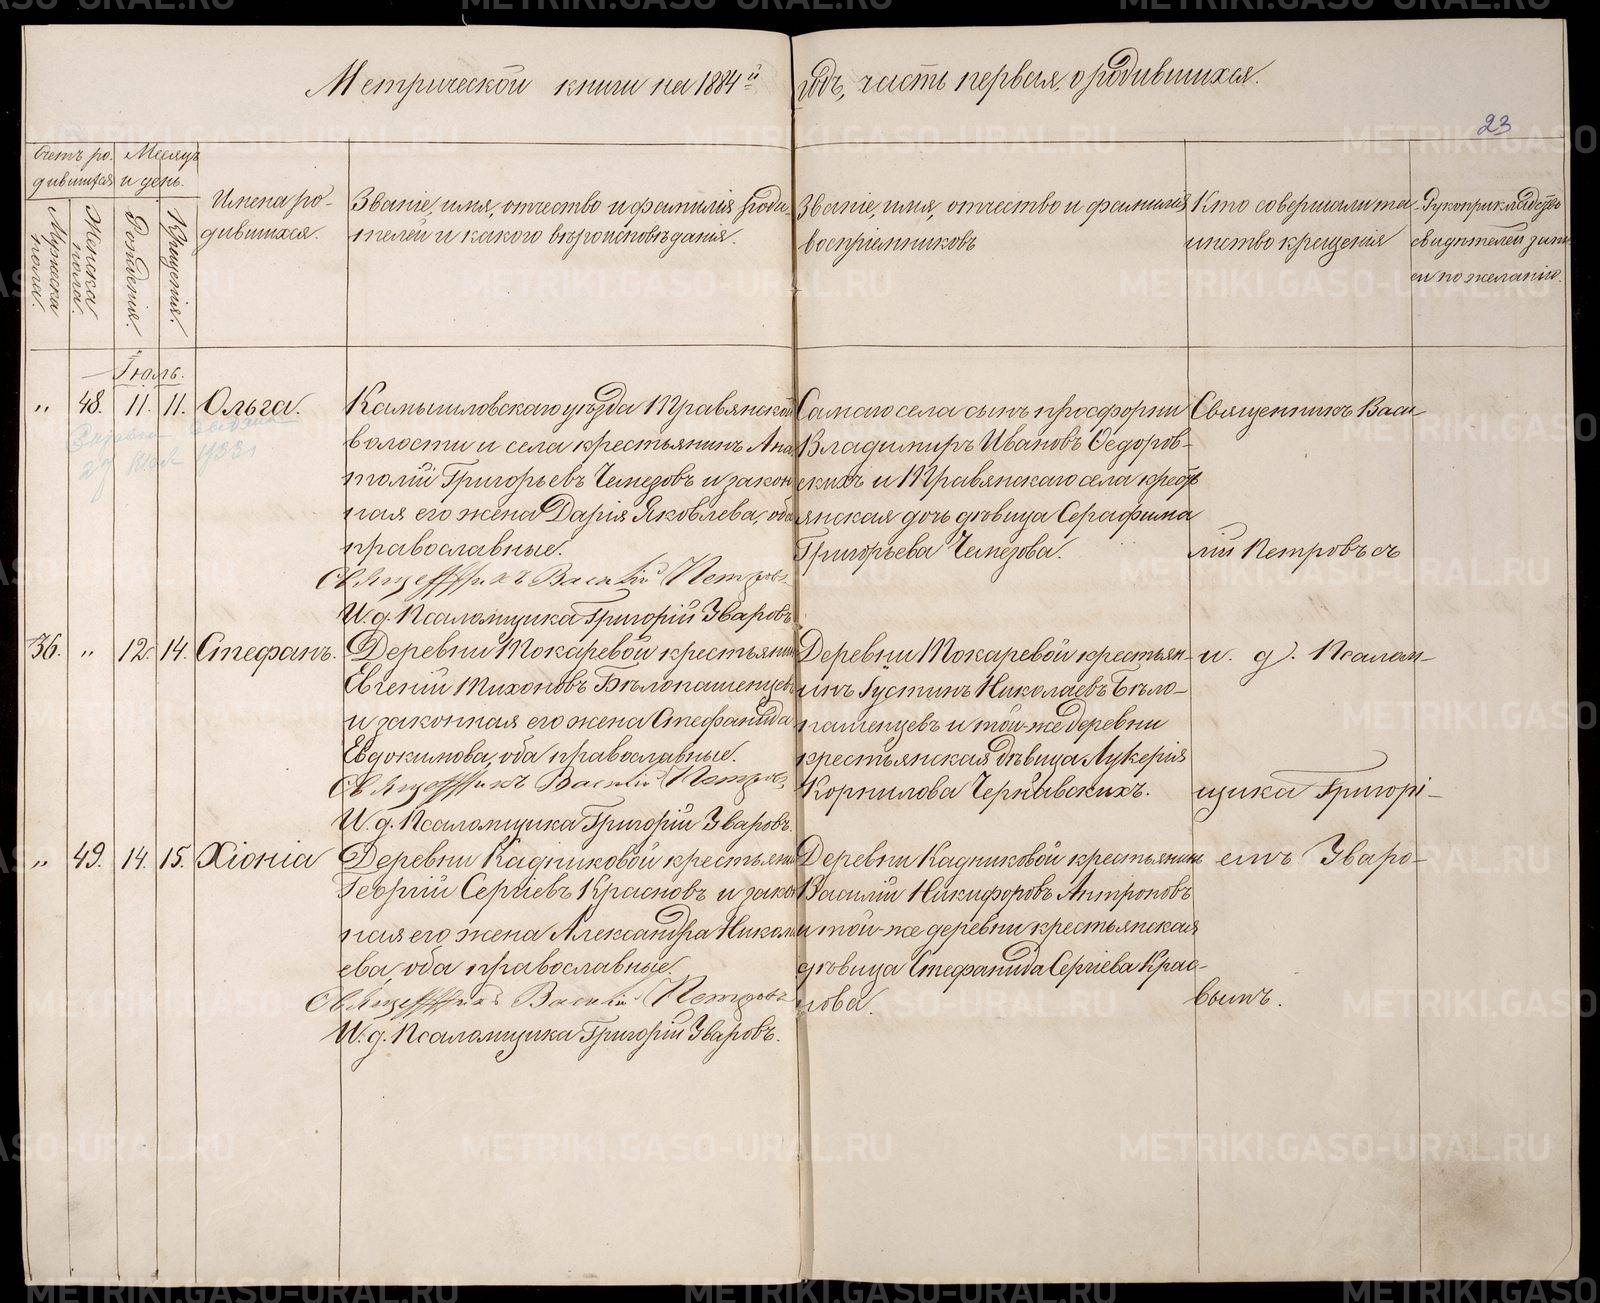 Метрической книги на 1884й годъ, часть первая, о родившихся.
23
Счетъ ро-
дившихся
Мужеска пола.
Женска пола.
Месяцъ
и день.
Рожденія.
Крещенія.
Имена ро-
дившихся.
Званіе, имя, отчество и фамилія роди-
телей и какого вѣроисповѣданія.
Званіе, имя, отчество и фамилія
воспріемниковъ
Кто совершалъ та-
инство крещенія
Рукоприкладство
свидѣтелей запи-
си по желанію.
Іюль.
„ 48. 11. 11. Ольга.
1933
Камышловскаго уѣзда Травянской
волости и села крестьянинъ Ана-
толій Григорьевъ Чемезовъ и закон-
ная его жена Дарія Яковлева, оба
православные.
Священникъ Василій Петровъ
И. д. Псаломщика Григорій Зваровъ
Самаго села сынъ просфорни
Владимиръ Ивановъ Федоров-
скихъ и Травянскаго села кресть
янская дочь дѣвица Серафима
Григорьева Чемезова.
Священникъ Васи-
лій Петровъ съ
36. „ 12. 14. Стефанъ.
Деревни Токаревой крестьянинъ
Евгеній Тихоновъ Бѣлопашенцевъ
и законная его жена Стефанида
Евдокимова, оба православные.
Священникъ Василій Петровъ
И. д. Псаломщика Григорій Зваровъ.
Деревни Токаревой крестьян-
инъ Іустинъ Николаевъ Бѣло-
пашенцевъ и той-же деревни
крестьянская дѣвица Лукерія
Корнилова Чернавскихъ.
и. д. Псалом-
щика Григорі-
„ 49. 14. 15. Хіонія
Деревни Кадниковой крестьянинъ
Георгій Сергіевъ Красновъ и закон
ная его жена Александра Никола
ева, оба православные.
Священникъ Василій Петровъ
И. д. Псаломщика Григорій Зваровъ.
Деревни Кадниковой крестьянинъ
Василій Никифоровъ Антроповъ
и той-же деревни крестьянская
дѣвица Стефанида Сергіева Крас-
нова.
емъ Зваро-
вымъ.
METRIKI.GASO-URAL.RU